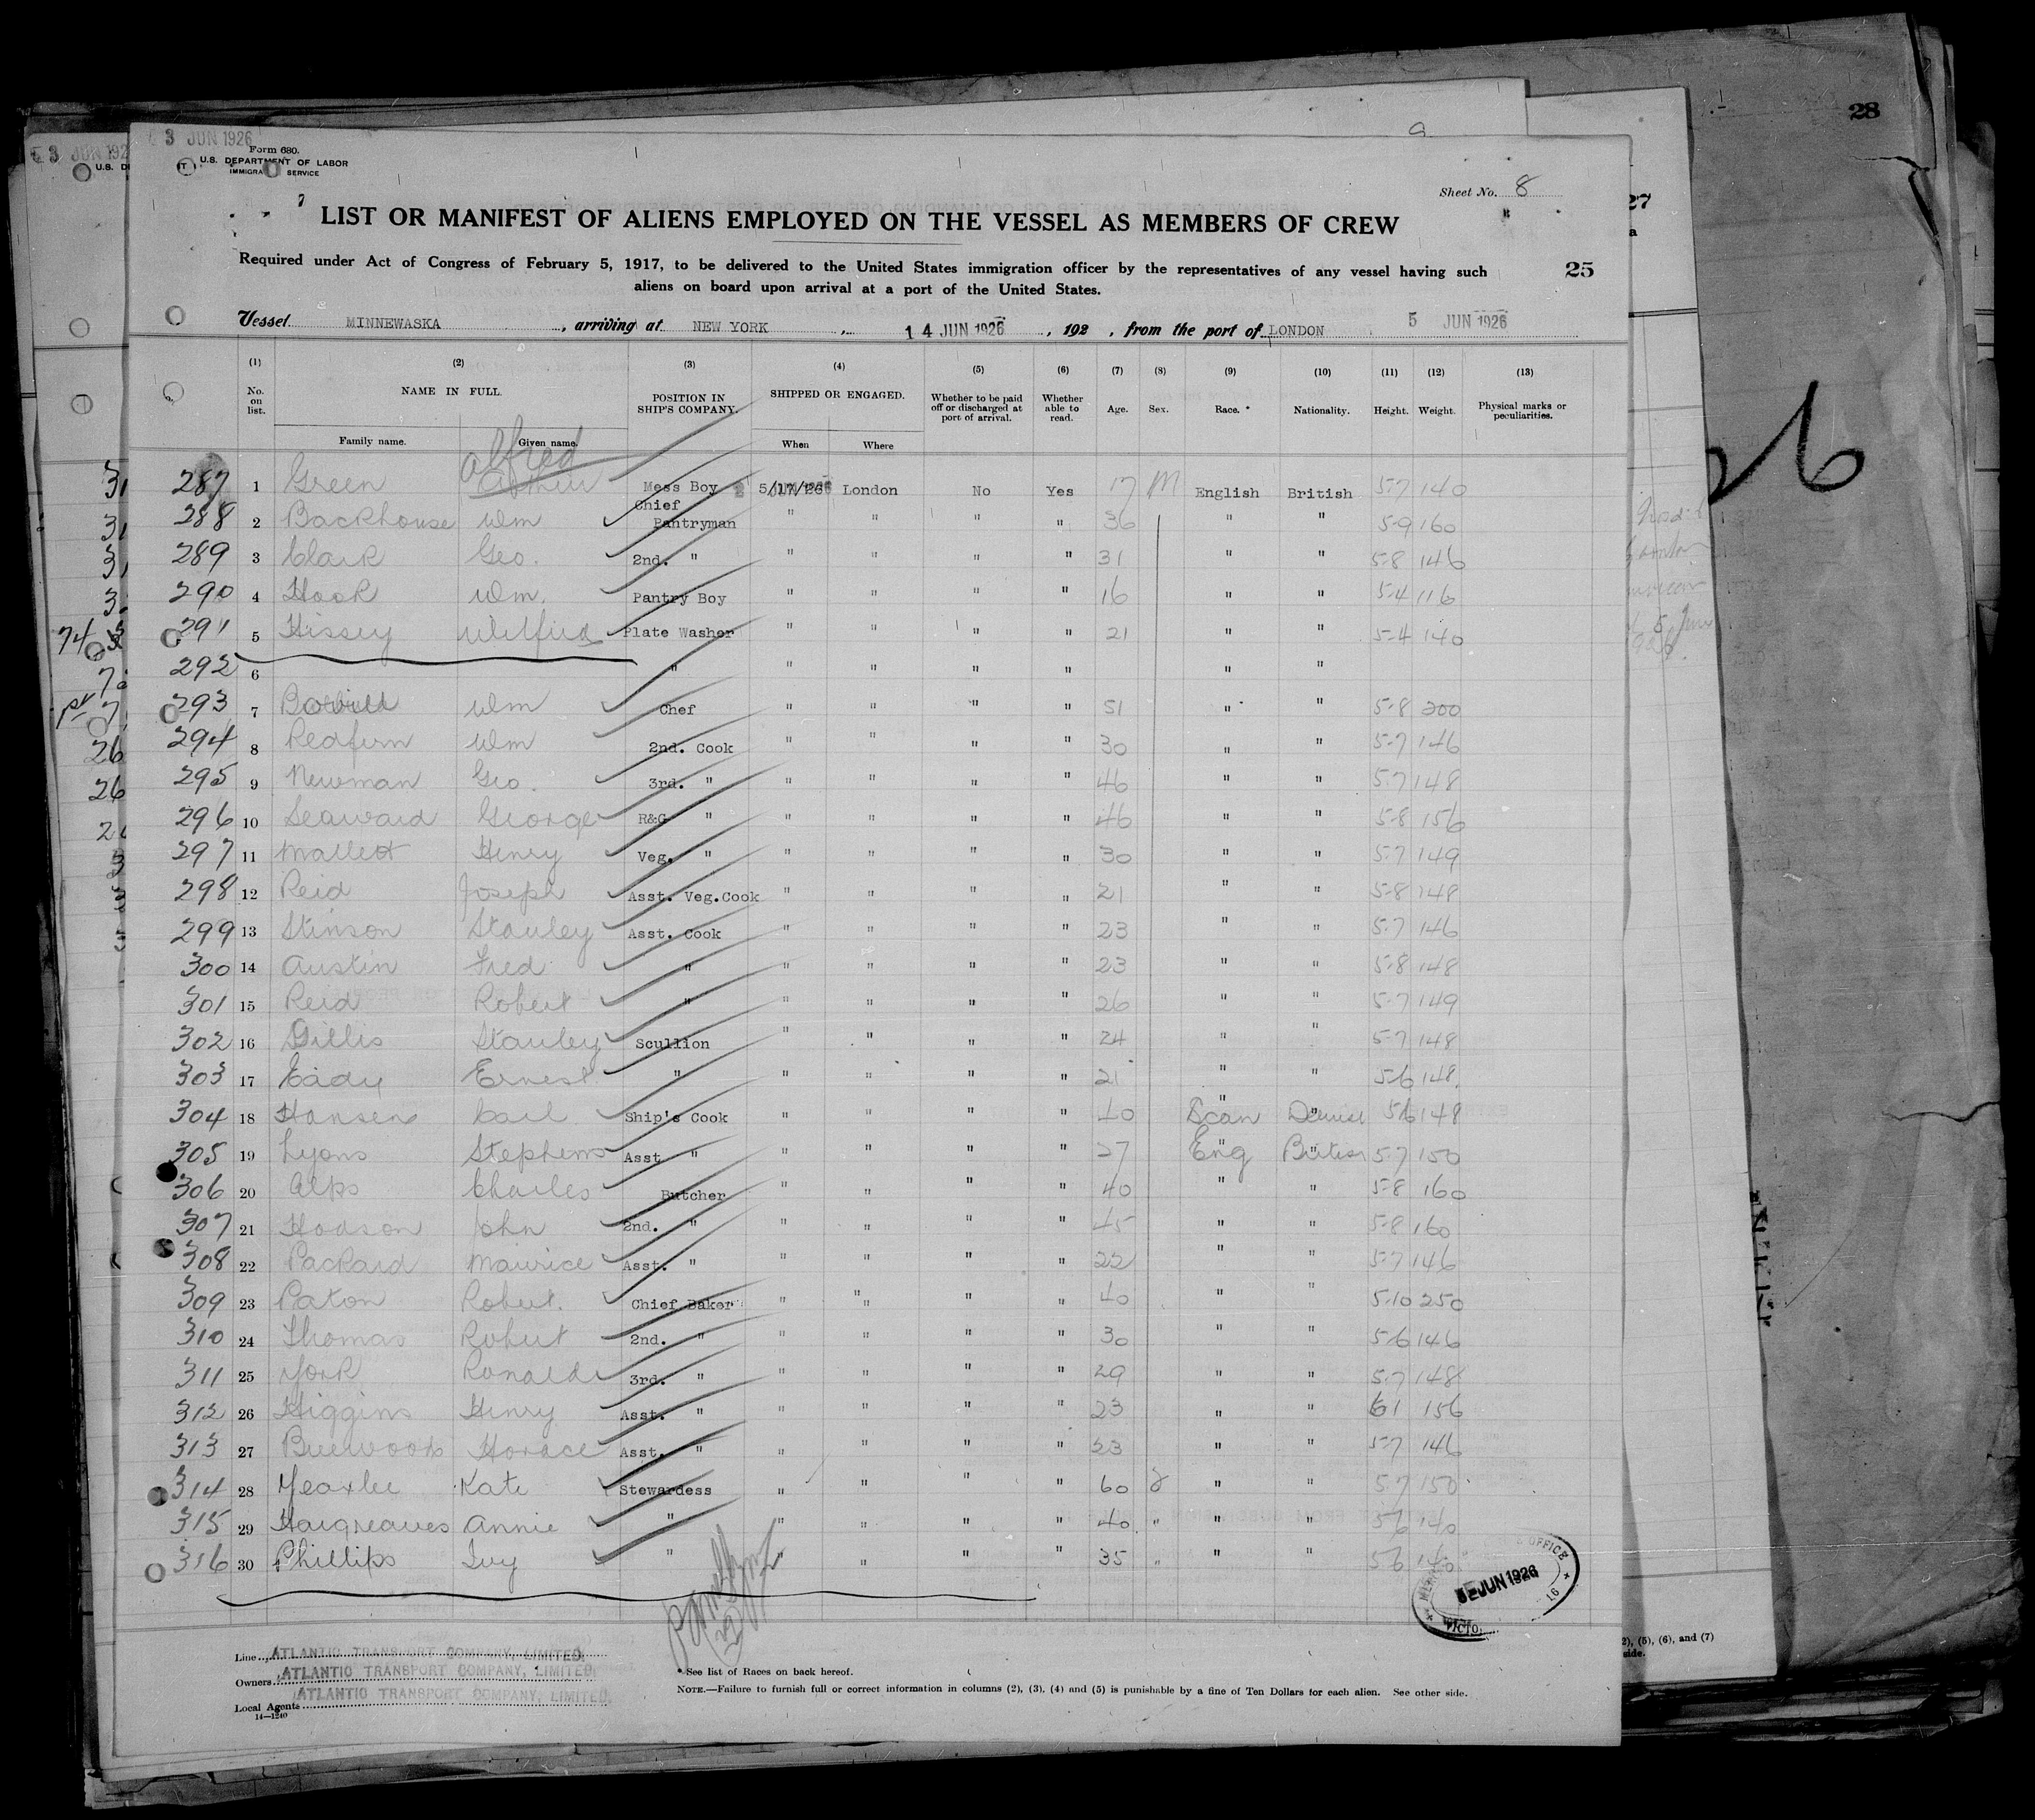 3 JUN 1926
Form 680.
U.S. DEPARTMENT OF LABOR
IMMIGRA SERVICE
Sheet No. 8
28
27
LIST OR MANIFEST OF ALIENS EMPLOYED ON THE VESSEL AS MEMBERS OF CREW
Required under Act of Congress of February 5, 1917, to be delivered to the United States immigration officer by the representatives of any vessel having such
aliens on board upon arrival at a port of the United States.
25
Vessel MINNEWASKA, arriving at NEW YORK, 14 JUN 1926, 192 , from the port of LONDON 5 JUN 1926
(1) (2) (3) (4) (5) (6) (7) (8) (9) (10) (11) (12) (13)
No. on list. NAME IN FULL. POSITION IN SHIP'S COMPANY. SHIPPED OR ENGAGED. Whether to be paid off or discharged at port of arrival. Whether able to read. Age. Sex. Race. * Nationality. Height. Weight. Physical marks or peculiarities.
Family name. Given name. When Where
26
Alfred
287 1 Green Mess Boy 5/17/26 London No Yes 17 M English British 5-7 140
288 2 Backhouse Wm Chief Pantryman " " " " 36 " " 5-9 160
289 3 Clark Geo. 2nd. " " " " " 31 " " 5-8 146
290 4 Hook Wm. Pantry Boy " " " " 16 " " 5-4 116
291 5 Hissey Wilfred Plate Washer " " " " 21 " " 5-4 140
292 6 " " " " " " "
293 7 Wm Chef " " " " 51 " " 5-8 200
294 8 Redfern Wm 2nd. Cook " " " " 30 " " 5-7 146
295 9 Newman Geo. 3rd. " " " " " 46 " " 5-7 148
296 10 Seaward George R&G " " " " " 46 " " 5-8 156
297 11 Mallett Henry Veg. " " " " " 30 " " 5-7 149
298 12 Reid Joseph Asst. Veg.Cook " " " " 21 " " 5-8 148
299 13 Stinson Stanley Asst. Cook " " " " 23 " " 5-7 146
300 14 Austin Fred " " " " " 23 " " 5-8 148
301 15 Reid Robert " " " " " 26 " " 5-7 149
302 16 Gillis Stanley Scullion " " " " 24 " " 5-7 148
303 17 Eady Ernest " " " " " 21 " " 5-6 148
304 18 Hansen Carl Ship's Cook " " " " 40 Scan Danish 5-6 148
305 19 Lyons Stephens Asst. " " " " " 27 Eng British 5-7 150
306 20 Alps Charles Butcher " " " " 40 " " 5-8 160
307 21 Hodson John 2nd. " " " " " 45 " " 5-8 160
308 22 Packard Maurice Asst. " " " " " 22 " " 5-7 146
309 23 Paton Robert. Chief Baker " " " " 40 " " 5-10 250
310 24 Thomas Robert 2nd. " " " " " 30 " " 5-6 146
311 25 York Ronald 3rd. " " " " " 29 " " 5-7 148
312 26 Higgins Henry Asst. " " " " " 23 " " 6-1 156
313 27 Horace Asst. " " " " " 23 " " 5-7 146
314 28 Yeaxlee Kate Stewardess " " " " 60 " " 5-7 150
315 29 Hargreaves Annie " " " " " 40 " " " 5-6 140
316 30 Phillips Ivy " " " " " 35 " " " 5-6 140
OFFICE
5-JUN 1926
Line ATLANTIC TRANSPORT COMPANY, LIMITED.
Owners ATLANTIC TRANSPORT COMPANY, LIMITED.
Local Agents ATLANTIC TRANSPORT COMPANY, LIMITED.
14—1240
* See list of Races on back hereof.
NOTE.—Failure to furnish full or correct information in columns (2), (3), (4) and (5) is punishable by a fine of Ten Dollars for each alien. See other side.
2), (5), (6), and (7)
side.